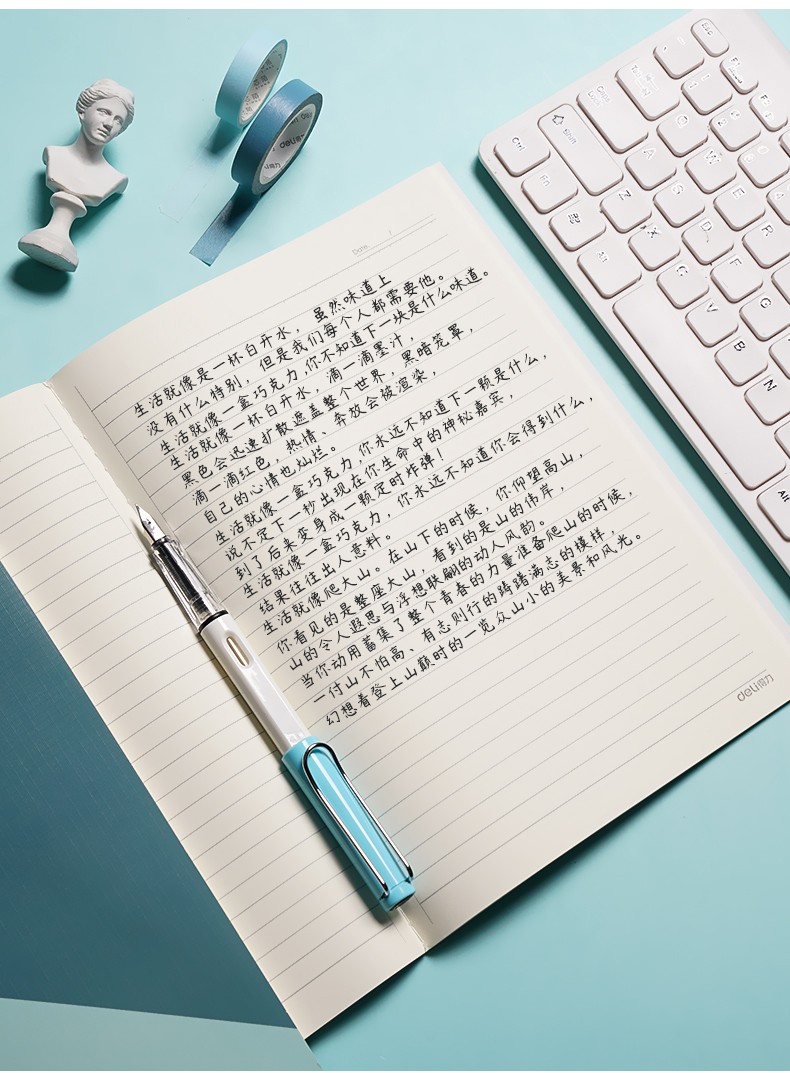 deli
deli得力
Date:
生活就像是一杯白开水，虽然味道上
没有什么特别，但是我们每个人都需要他。
生活就像一盒巧克力,你不知道下一块是什么味道。
生活就像一杯白开水，滴一滴墨汁，
黑色会迅速扩散遮盖整个世界，黑暗笼罩，
滴一滴红色，热情、奔放会被渲染，
自己的心情也灿烂。
生活就像一盒巧克力,你永远不知道下一颗是什么，
说不定下一秒出现在你生命中的神秘嘉宾，
到了后来变身成一颗定时炸弹！
生活就像一盒巧克力，你永远不知道你会得到什么，
结果往往出人意料。
生活就像爬大山。在山下的时候，你仰望高山，
你看见的是整座大山，看到的是山的伟岸，
山的令人遐思与浮想联翩的动人风韵。
当你动用蓄集了整个青春的力量准备爬山的时候，
一付山不怕高、有志则行的踌躇满志的模样，
幻想着登上山巅时的一览众山小的美景和风光。
deli得力
Esc
Shift
Ctrl
Fn
Alt
A
Z
X
S
W
D
C
E
R
F
V
B
N
Alt